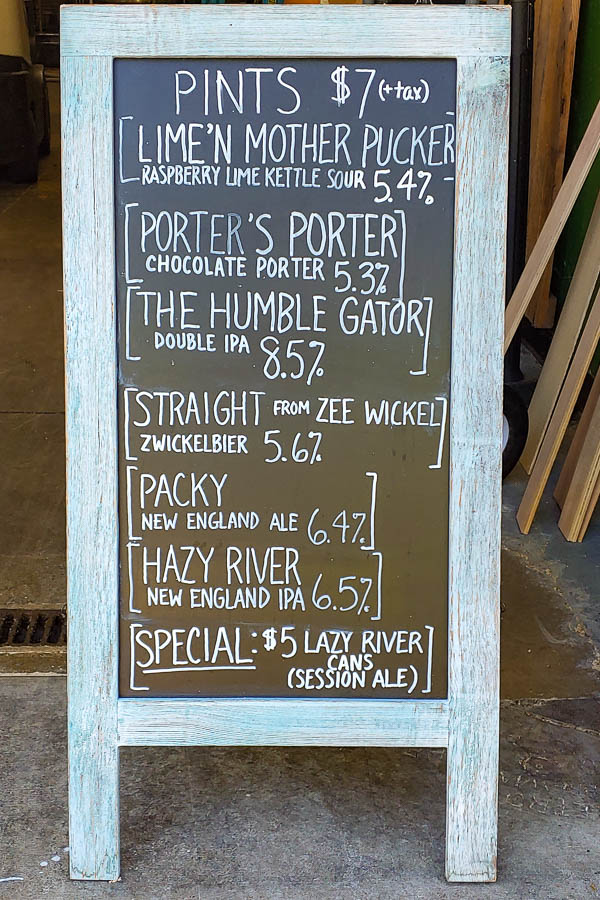 PINTS $7 (+tax)
LIME'N MOTHER PUCKER
RASPBERRY LIME KETTLE SOUR 5.4%
PORTER'S PORTER
CHOCOLATE PORTER 5.3%
THE HUMBLE GATOR
DOUBLE IPA 8.5%
STRAIGHT FROM ZEE WICKEL
ZWICKELBIER 5.6%
PACKY
NEW ENGLAND ALE 6.4%
HAZY RIVER
NEW ENGLAND IPA 6.5%
SPECIAL: $5 LAZY RIVER
CANS
(SESSION ALE)